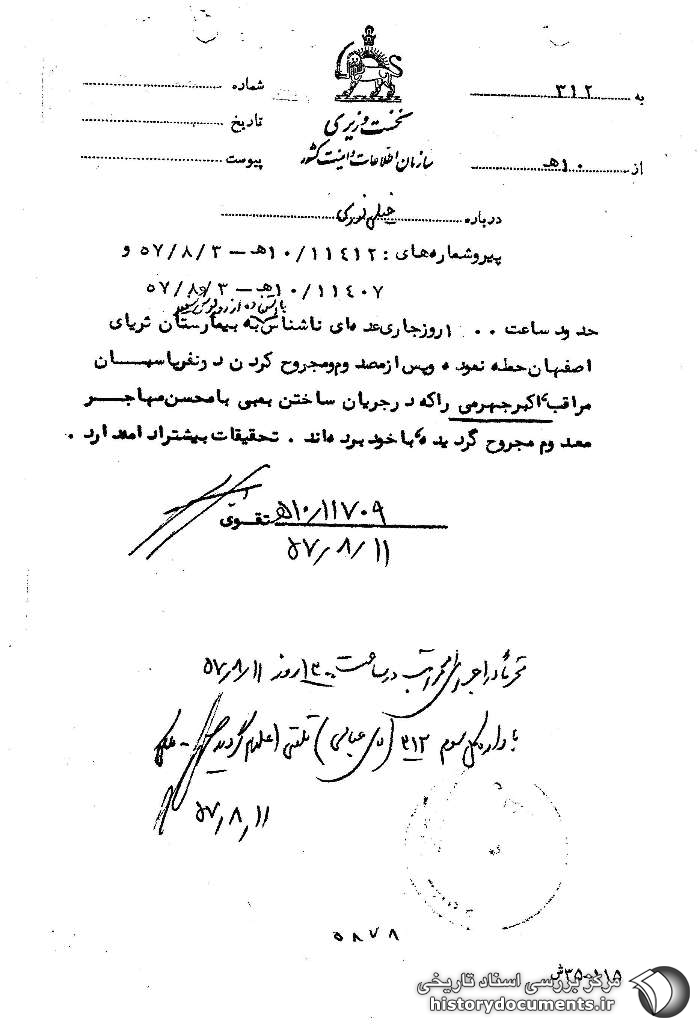 به ۳۱۲
شماره
نخست وزیری
تاریخ
سازمان اطلاعات و امنیت کشور
از ۱۰هـ
پیوست
درباره خیلی فوری
پیرو شماره‌های : ۱۰/۱۱۴۱۲هـ – ۵۷/۸/۳ و
۱۰/۱۱۴۰۷هـ – ۵۷/۸/۳
با استفاده از
حدود ساعت ۱۰۰۰ روز جاری عده‌ای ناشناس به بیمارستان ثریای
اصفهان حمله نموده و پس از مصدوم و مجروح کردن دو نفر پاسبان
مراقب، اکبر جهرمی را که در جریان ساختن بمبی با محسن مهاجر
معدوم مجروح گردیده، با خود برده‌اند . تحقیقات بیشتر ادامه دارد .
تقوی ۱۰/۱۱۷۰۹هـ
۵۷/۸/۱۱
در اجرای مراتب در ساعت ۱۳۰۰ روز ۵۷/۸/۱۱
با اداره کل سوم ۳۱۲ (عباسی) تلفنی اعلام گردید
۵۷/۸/۱۱
۵۸۷۸
مرکز بررسی اسناد تاریخی
historydocuments.ir